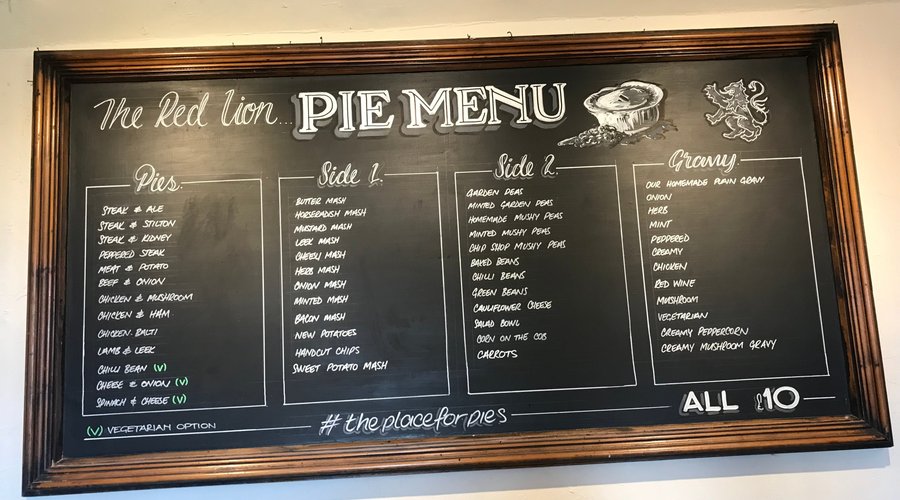 The Red Lion.... PIE MENU
Pies
STEAK & ALE
STEAK & STILTON
STEAK & KIDNEY
PEPPERED STEAK
MEAT & POTATO
BEEF & ONION
CHICKEN & MUSHROOM
CHICKEN & HAM
CHICKEN BALTI
LAMB & LEEK
CHILLI BEAN (V)
CHEESE & ONION (V)
SPINACH & CHEESE (V)
Side 1
BUTTER MASH
HORSERADISH MASH
MUSTARD MASH
LEEK MASH
CHEESY MASH
HERB MASH
ONION MASH
MINTED MASH
BACON MASH
NEW POTATOES
HANDCUT CHIPS
SWEET POTATO MASH
Side 2
GARDEN PEAS
MINTED GARDEN PEAS
HOMEMADE MUSHY PEAS
MINTED MUSHY PEAS
CHIP SHOP MUSHY PEAS
BAKED BEANS
CHILLI BEANS
GREEN BEANS
CAULIFLOWER CHEESE
SALAD BOWL
CORN ON THE COB
CARROTS
Gravy
OUR HOMEMADE PLAIN GRAVY
ONION
HERB
MINT
PEPPERED
CREAMY
CHICKEN
RED WINE
MUSHROOM
VEGETARIAN
CREAMY PEPPERCORN
CREAMY MUSHROOM GRAVY
(V) VEGETARIAN OPTION
#theplaceforpies
ALL £10